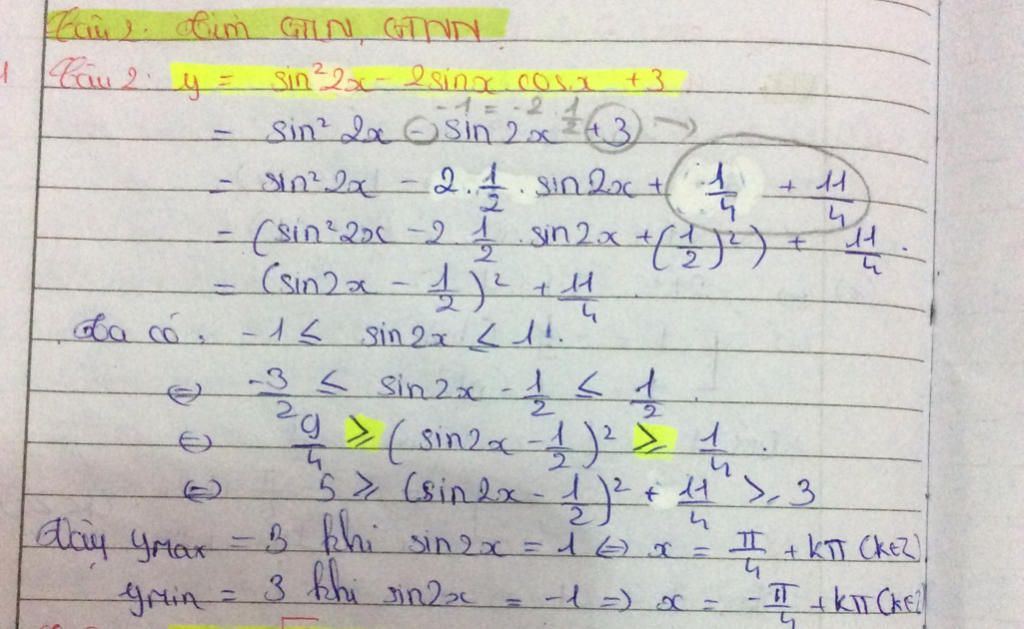 Câu 2: Tìm GTLN, GTNN
Câu 2: y = sin²2x - 2sinx.cosx + 3
-1 = -2 . 1/2
= sin² 2x - sin 2x + 3 →
= sin² 2x - 2 . 1/2 . sin2x + 1/4 + 11/4
= (sin²2x - 2 . 1/2 . sin2x + (1/2)²) + 11/4 .
= (sin2x - 1/2)² + 11/4 .
Ta có: -1 ≤ sin2x ≤ 1 .
⇔ -3/2 ≤ sin2x - 1/2 ≤ 1/2 .
⇔ 9/4 ≥ (sin2x - 1/2)² ≥ 1/4 .
⇔ 5 ≥ (sin2x - 1/2)² + 11/4 ≥ 3
Vậy yMax = 3 khi sin2x = 1 ⇔ x = π/4 + kπ (k∈Z)
yMin = 3 khi sin2x = -1 ⇒ x = -π/4 + kπ (k∈Z)